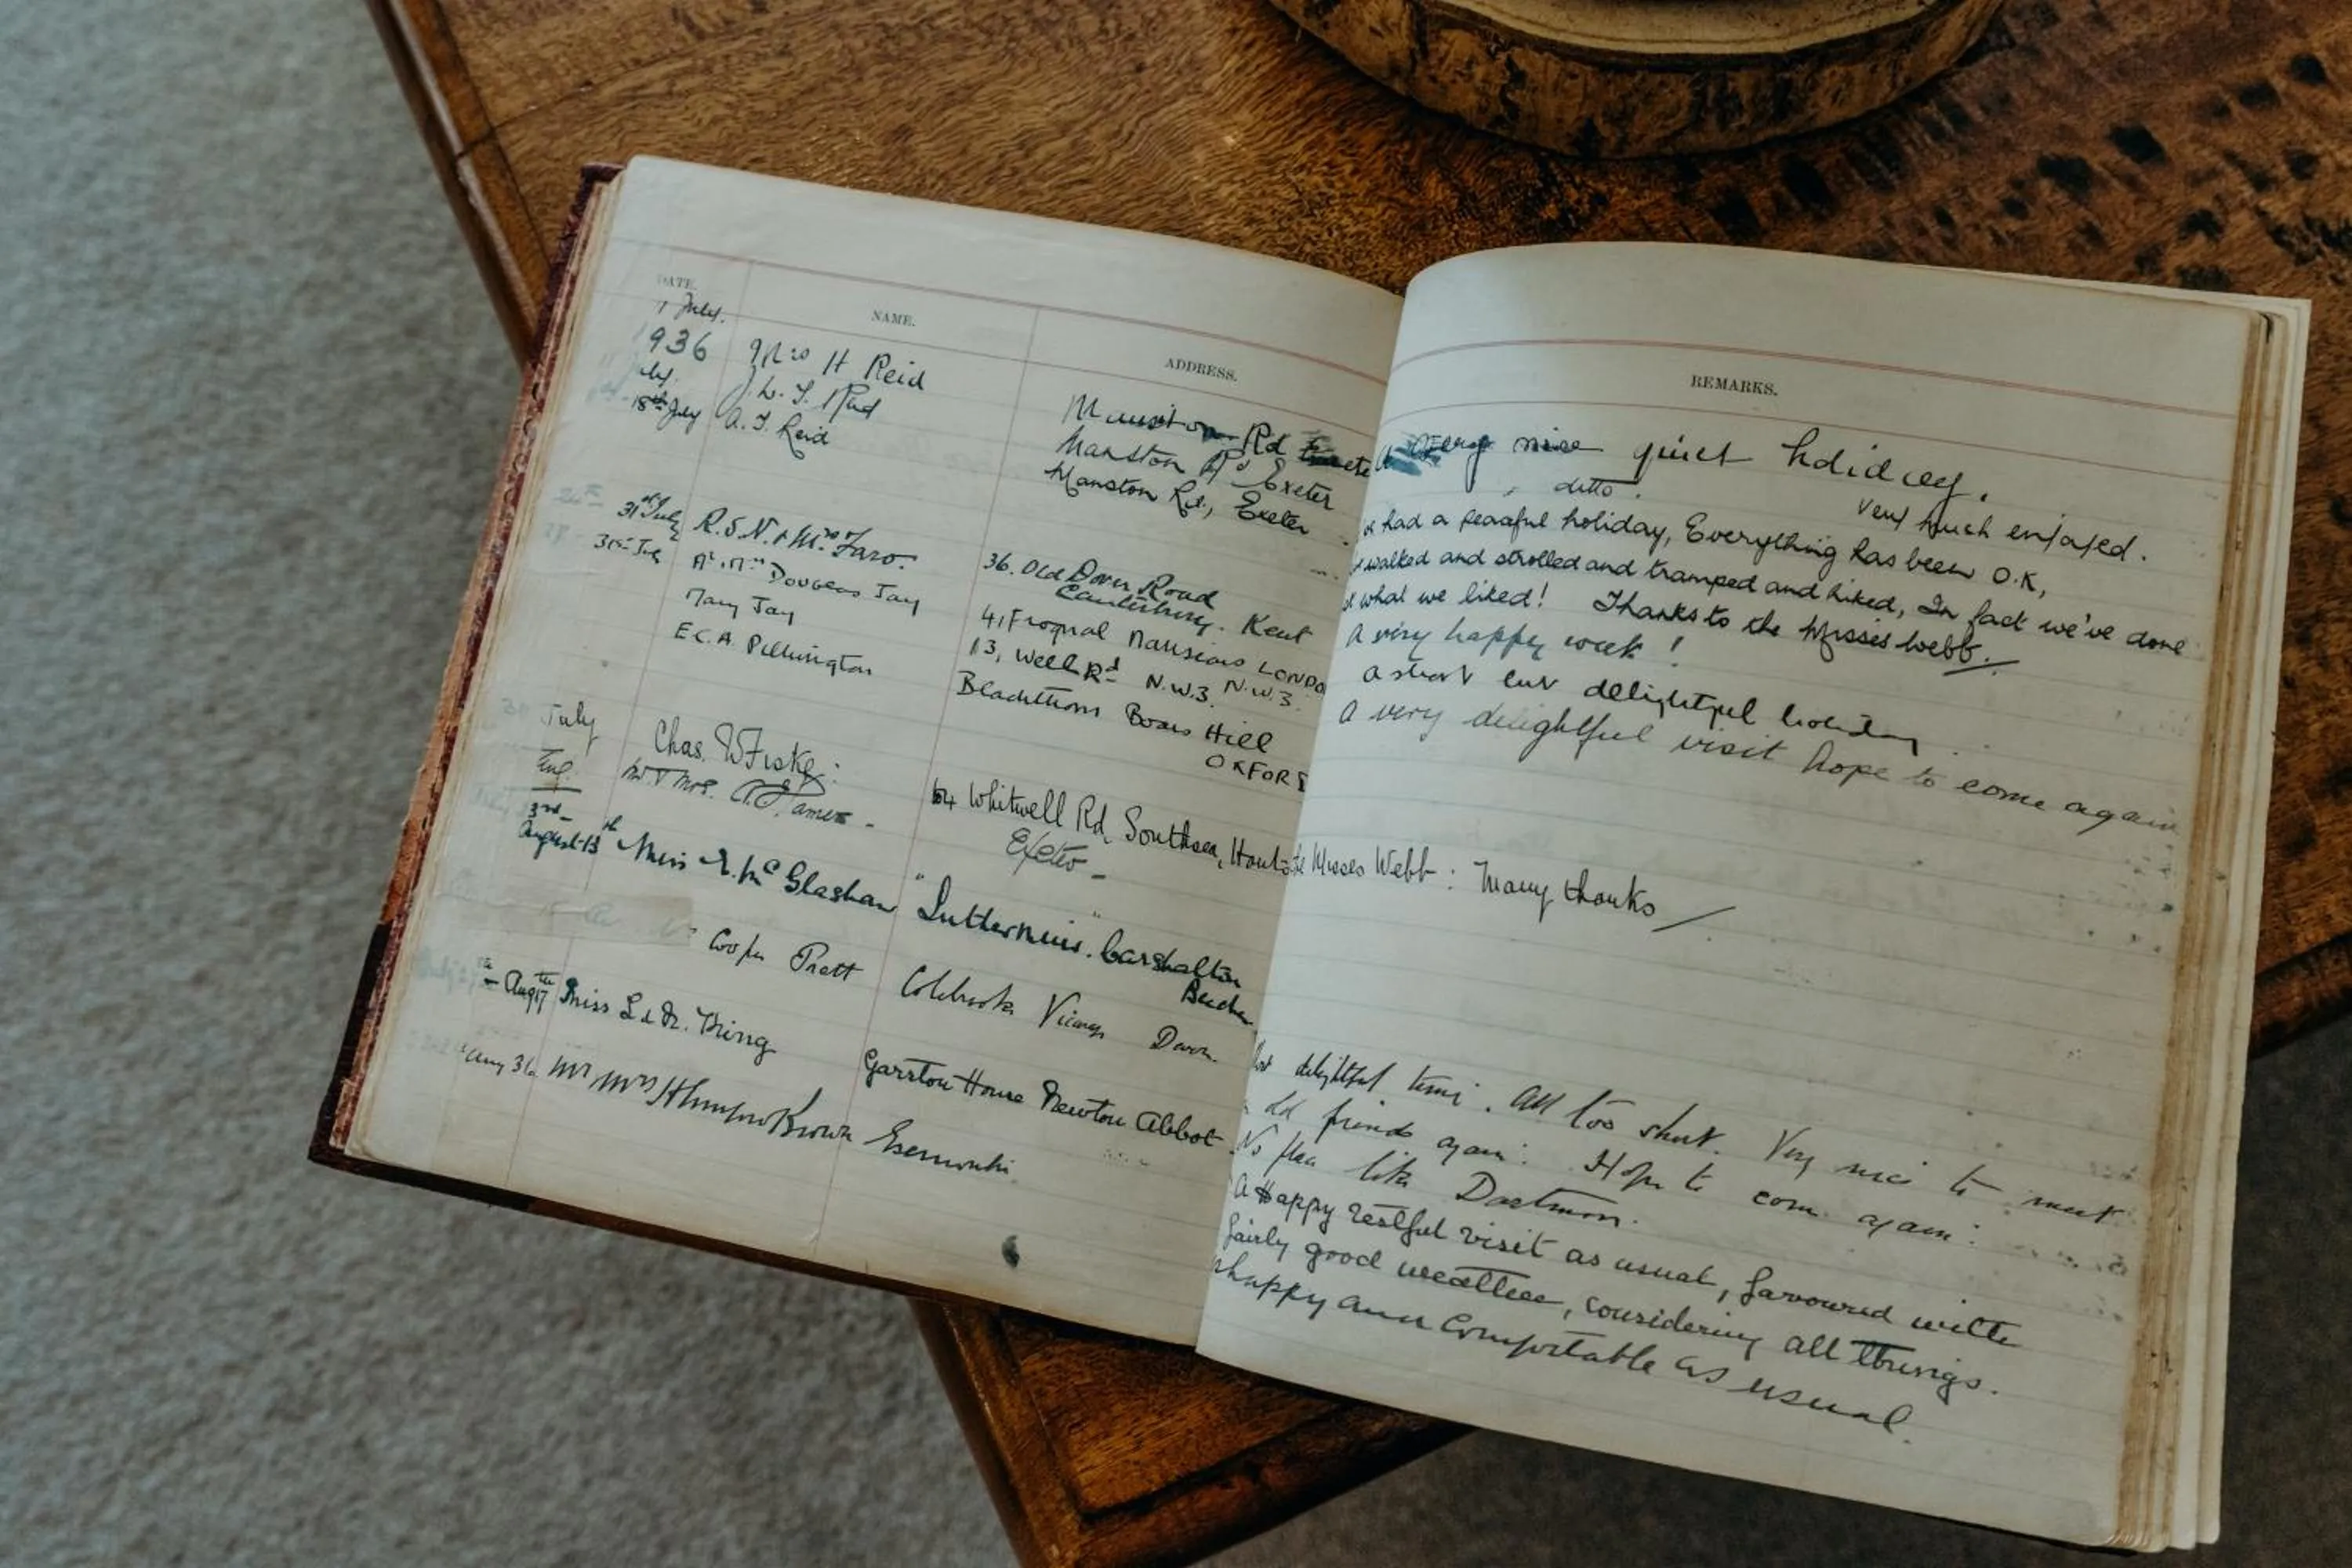 DATE.
NAME.
ADDRESS.
July.
1936
Mrs H Reid
Manston Rd
July.
J. L. T. Reid
Manston Rd Exeter
18th July
A. T. Reid
Manston Rd., Exeter
31st July
R. S. N. & Mrs Faro.
36. Old Dover Road
Canterbury. Kent
31st July
Mr. & Mrs Douglas Jay
41 Frognal Mansions LONDO
N.W.3.
Mary Jay
13, Well Rd N.W.3.
E.C.A. Pilkington
Boars Hill
OXFORD
July
Chas. W Fiske
64 Whitwell Rd, Southsea, Hants
Aug.
3rd
Mr & Mrs. James
Exeter
August 13th
Miss McGlashan
Carshalton
Cooper Pratt
Colebrooke Vicarage Devon.
Aug 17th
Miss L & M. King
Garston House Newton Abbot
Aug 36
Mr Mrs Brown
REMARKS.
A very nice quiet holiday.
ditto.
very much enjoyed.
had a peaceful holiday, Everything has been O.K,
walked and strolled and tramped and hiked, In fact we've done
what we liked! Thanks to the Misses Webb.
A very happy week!
a short but delightful holiday
A very delightful visit hope to come again
Misses Webb: Many thanks
delightful time. All too short. Very nice to meet
old friends again: Hope to come again:
No place like Dartmoor.
A Happy restful visit as usual, favoured with
fairly good weather, considering all things.
happy and Comfortable as usual.